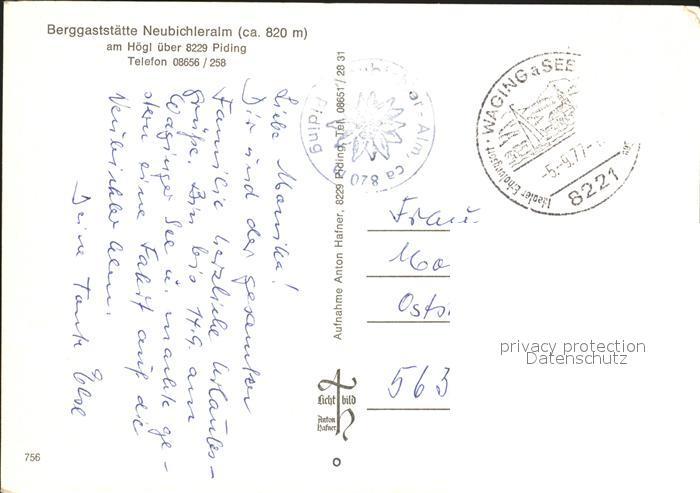 Berggaststätte Neubichleralm (ca. 820 m)
am Högl über 8229 Piding
Telefon 08656 / 258
Liebe Monika!
Dir und der gesamten
Familie herzliche Urlaubs-
grüße. Bin bis 14.9. am
Waginger See u. machte ge-
stern eine Fahrt auf die
Neubichler Alm.
Deine Tante Else
Aufnahme Anton Hafner, 8229 Piding, Tel. 08651 / 28 31
Licht bild
Anton
Hafner
-Alm, ca 820
Piding
WAGING a SEE
-5.-9.77-
8221
Idealer Erholungsort
Frau
Mo
Osts
563
privacy protection
Datenschutz
756